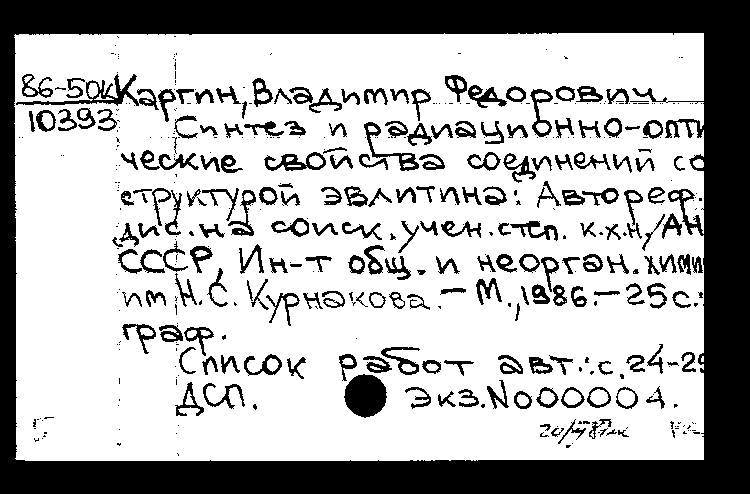 86-50к Каргин, Владимир Федорович.
10393
Синтез и радиационно-опти
ческие свойства соединений со
структурой эвлитина: Автореф.
дис. на соиск. учен. степ. к.х.н./АН
СССР, Ин-т общ. и неорган. хими
им Н.С. Курнакова. - М., 1986. - 25 с.:
граф.
Список работ авт.: с. 24-25
ДСП. Экз. №000004.
5